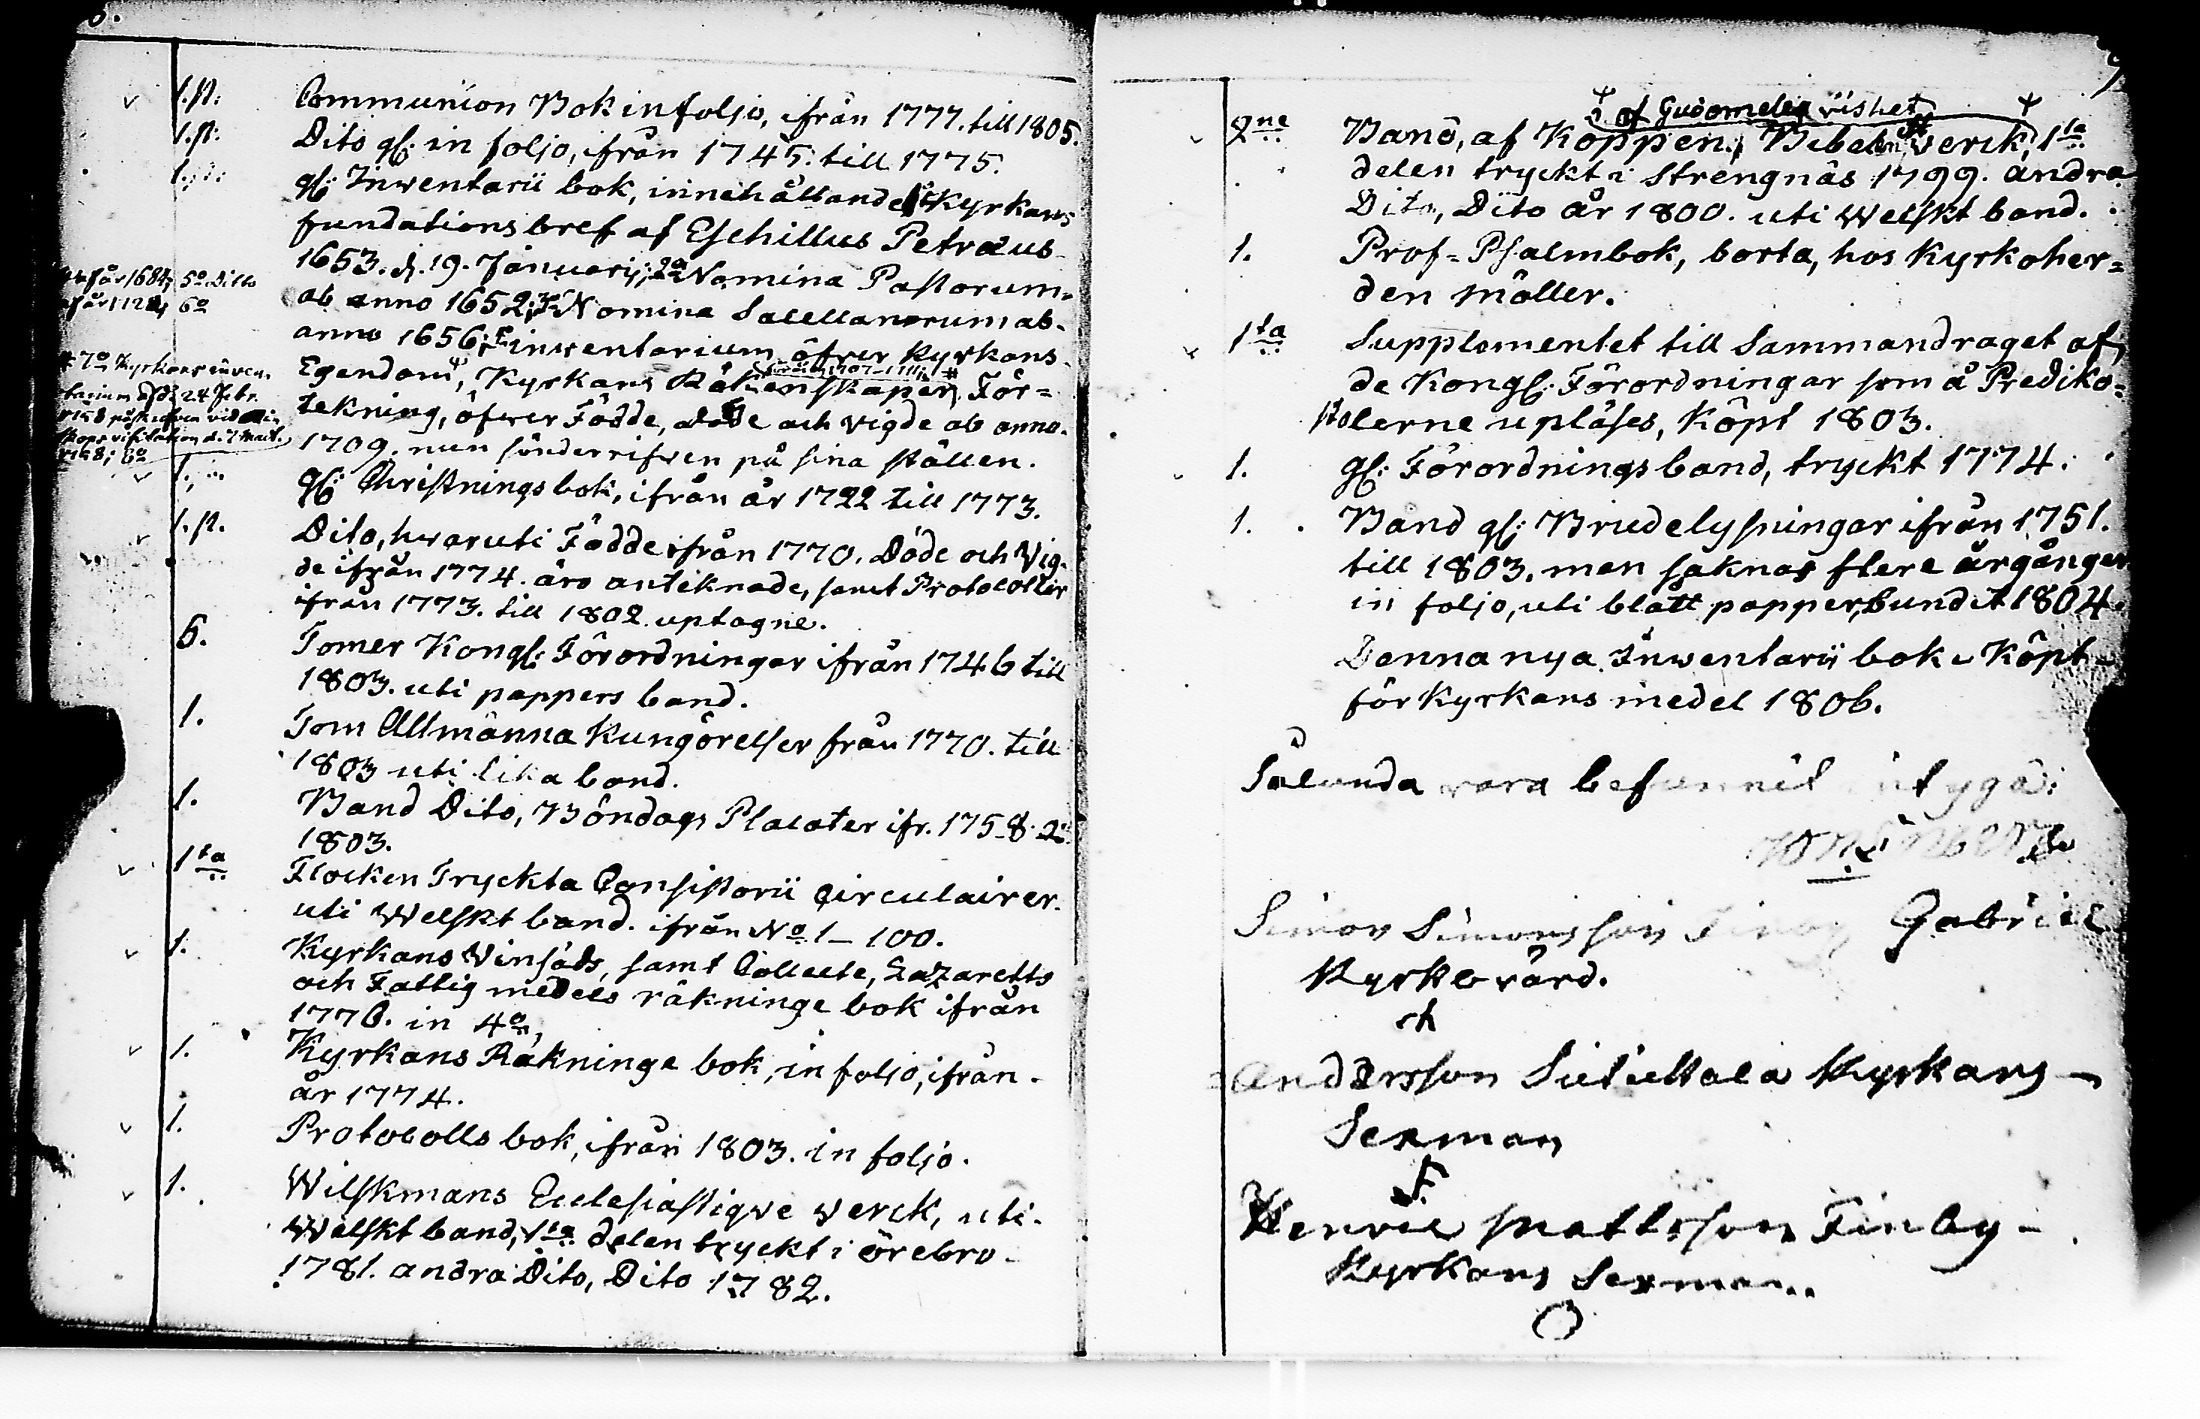 8.
1. st: Communion Bok in foljo, ifrån 1777. till 1805.
1. st: Dito gl: in foljo, ifrån 1745. till 1775.
1. st: gl: Inwentarii bok, innehållande Kyrkans
fundations bref af Eschillus Petræus
1653. d. 19. Januarij; 2a Nomina Pastorum
ab anno 1652; 3o Nomina Sacellanorum ab
anno 1656; inwentarium öfwer Kyrkans
Egendom, Kyrkans Räkenskaper, För=
tekning, öfwer Födde, döde och vigde ab anno
1709. nun sönderrifwen på sina ställen.
af år 1684; 5o Ditto
af år 112 6o
# 7o Kyrkans inven
tarium
24 Febr.
vid
visitation d. 7 Mart.
1. gl: Christnings bok, ifrån år 1722 till 1773.
1. st. Dito, hwaruti Födde ifrån 1770. Döde och Vig-
de ifrån 1774. äro anteknade, samt Protocoller
ifrån 1773. till 1802 uptagne.
5. Tomer Kongl: Förordningar ifrån 1746 till
1803. uti pappers band.
1. Tom Allmänna Kungörelser från 1770. till
1803 uti lika band.
1. Band Dito, Böndags Placater ifr. 1758
1803.
1ta Flocken Tryckta Consistorii Circulairer
uti Welskt band. ifrån No 1 – 100.
1. Kyrkans Vinsäds, samt Collecte, Lazaretts
och Fattig medels räkninge bok ifrån
1776. in 4o
1. Kyrkans Räkninge bok, in foljo, ifrån
år 1774.
1. Protocolls bok, ifrån 1803. in foljo.
1. Wilskmans Ecclesiastiqve verck, uti
Welskt band, 1ta delen tryckt i örebro
1781. andra Dito, Dito 1782.
9
af Gudomelig vishet
2ne Band, af Köppen, Bibel verck, 1ta
delen tryckt i Strengnäs 1799. andra
Dito, Dito år 1800. uti Welskt band.
1. Prof=Psalmbok, borta, hos Kyrkoher=
den Möller.
1ta Supplementet till Sammandraget af
de Kongl: Förordningar som å Prediko=
stolerne upläses, Köpt 1803.
1. gl: Förordnings band, tryckt 1774.
1. Band gl: Brudelysningar ifrån 1751.
till 1803. men saknas flere årgånger
in foljo, uti blått papper, bundit 1804.
Denna nya Inwentarii bok Köpt
för Kyrkans medel 1806.
Sålunda vara befunnit intyga:
Simon Simonsson Finby Gabriel
Kyrkovärd.
Andersson Kyrkans
Sexman
Henric Mattsson Finby
Kyrkans Sexman.